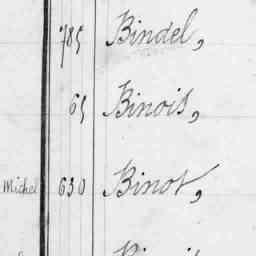 785 Bindel,
65 Binois,
Michel 630 Binot,